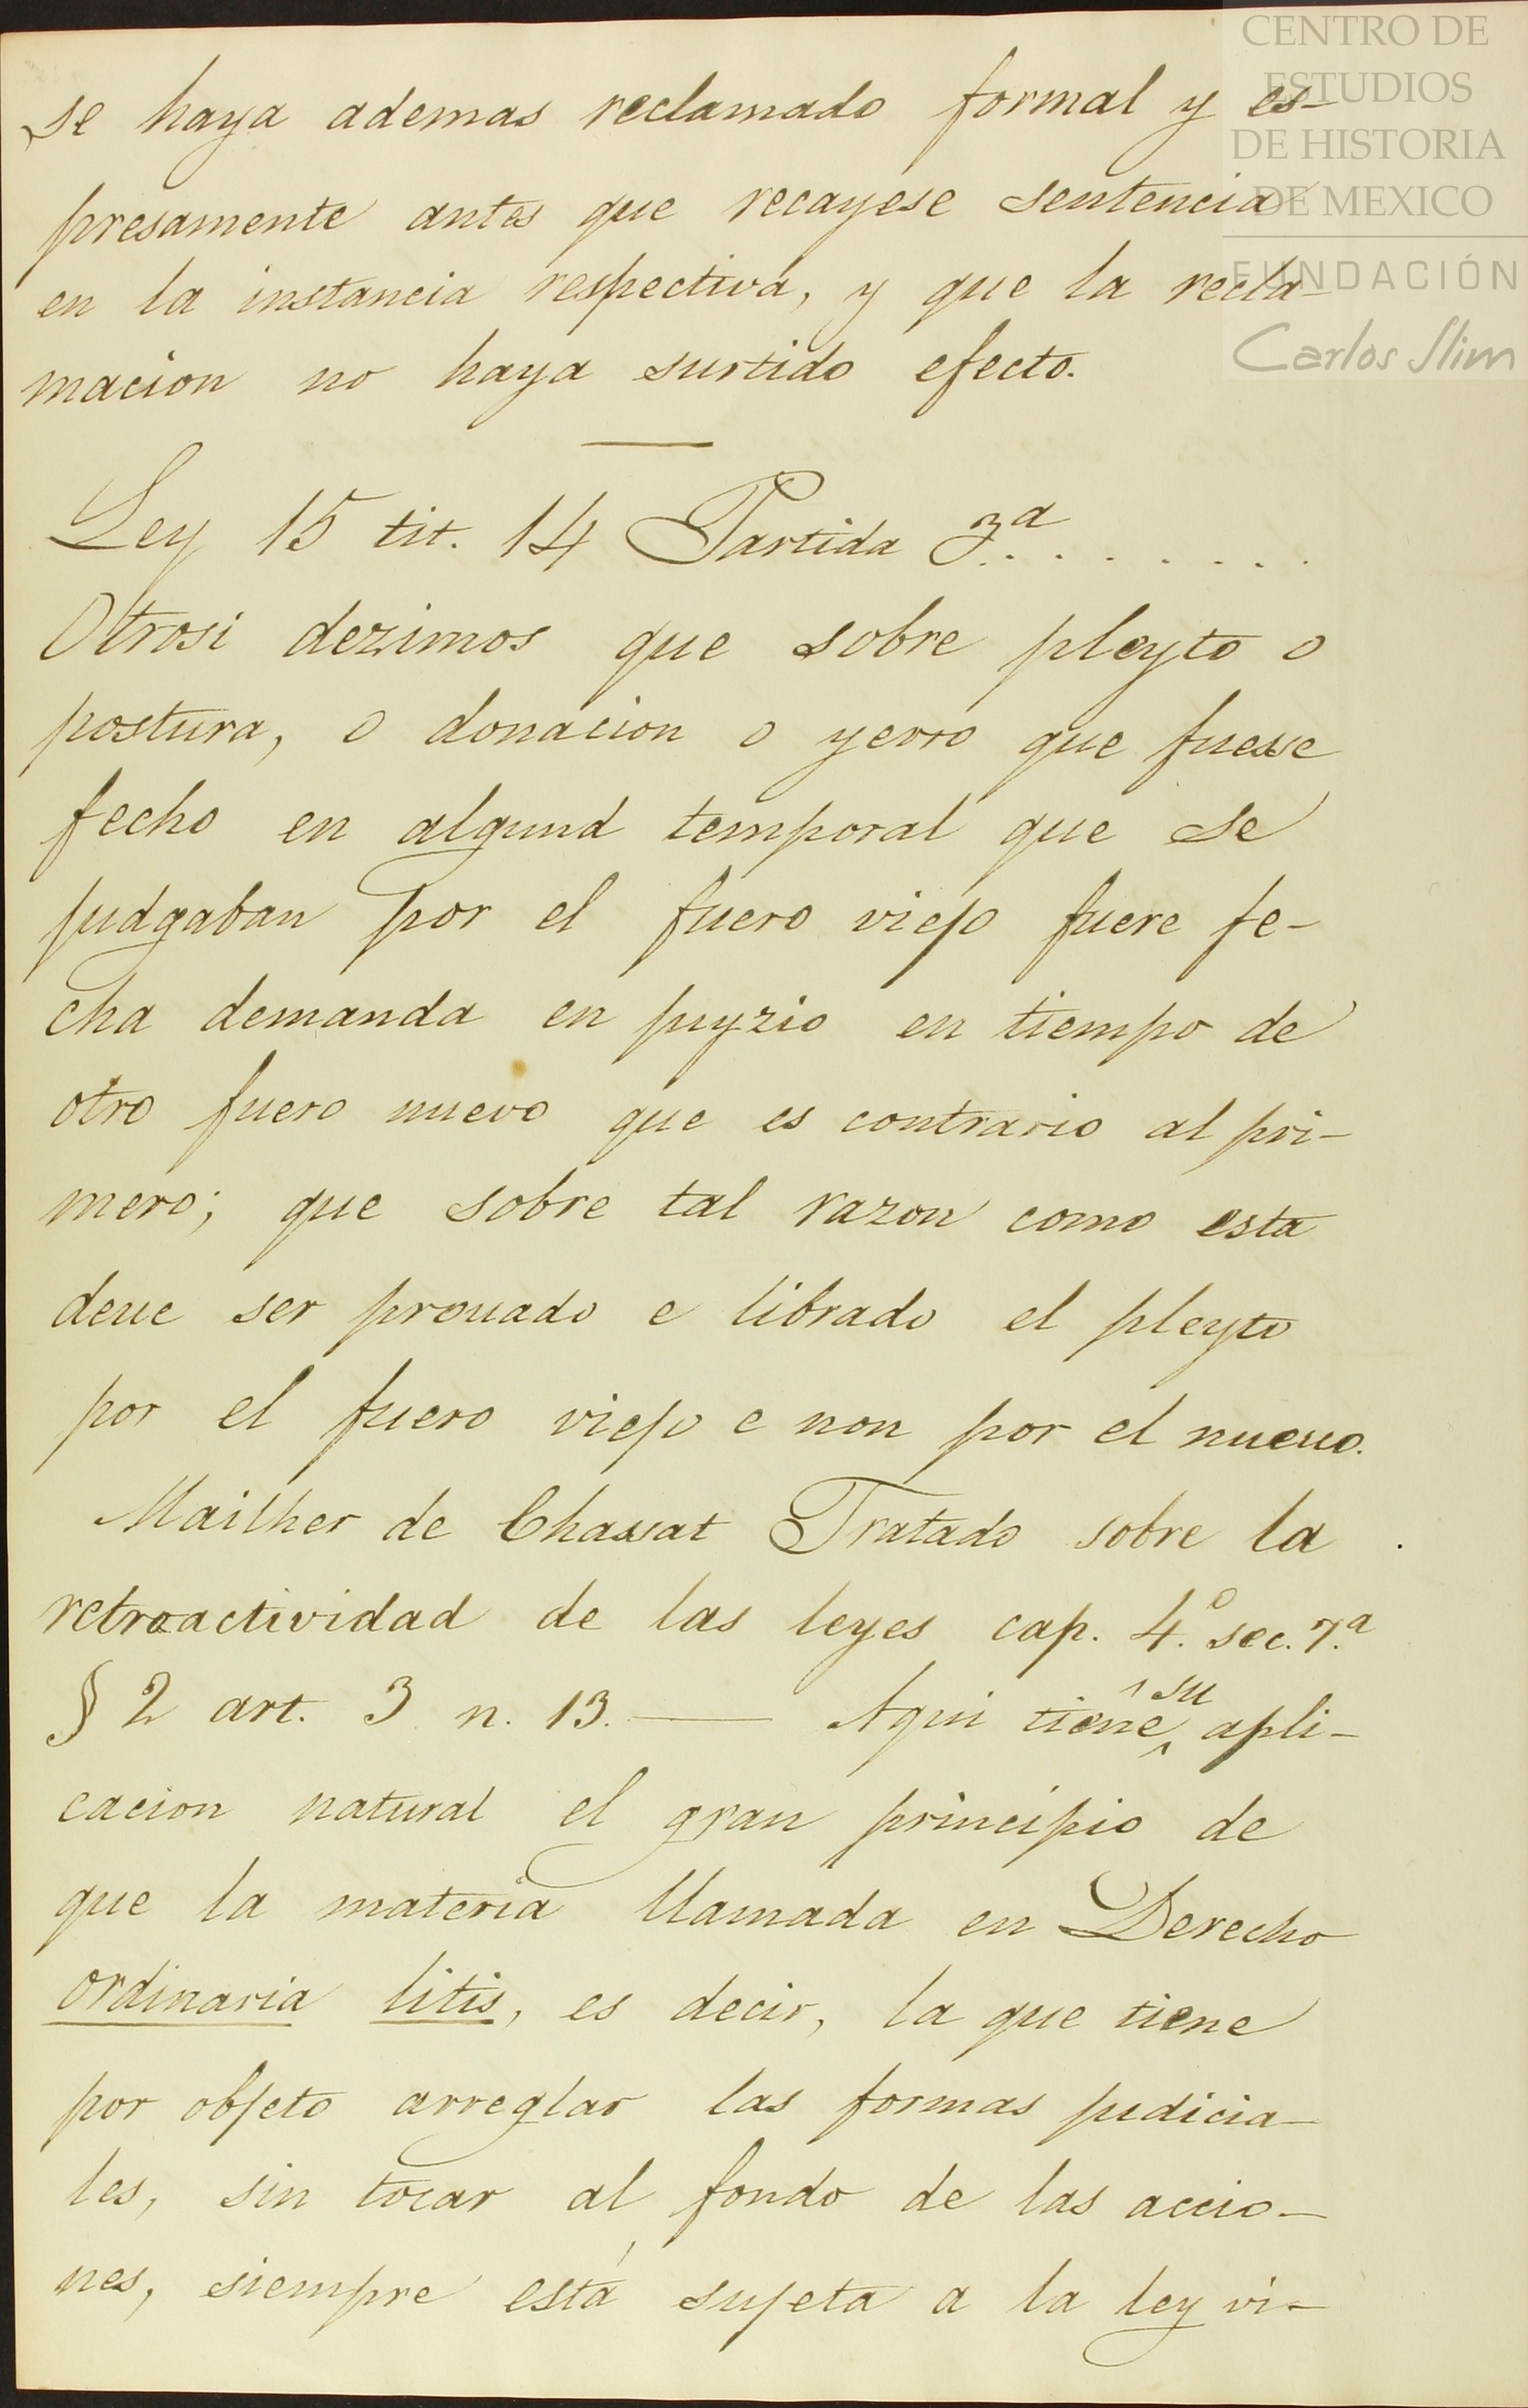 CENTRO DE
ESTUDIOS
DE HISTORIA
DE MEXICO
FUNDACIÓN
Carlos Slim
se haya ademas reclamado formal y es-
presamente antes que recayese sentencia
en la instancia respectiva, y que la recla-
macion no haya surtido efecto.
Ley 15 tit. 14 Partida 3.ª . . . . . . .
Otrosi dezimos que sobre pleyto o
postura, o donacion o yerro que fuesse
fecho en algund temporal que se
judgaban por el fuero viejo fuere fe-
cha demanda en juyzio en tiempo de
otro fuero nuevo que es contrario al pri-
mero; que sobre tal razon como esta
deue ser prouado e librado el pleyto
por el fuero viejo e non por el nueuo.
Mailher de Chassat Tratado sobre la
retroactividad de las leyes cap. 4.º sec. 7.ª
§ 2 art. 3 n. 13. — Aqui tiene su apli-
cacion natural el gran principio de
que la materia llamada en Derecho
ordinaria litis, es decir, la que tiene
por objeto arreglar las formas judicia-
les, sin tocar al fondo de las accio-
nes, siempre está sujeta a la ley vi-